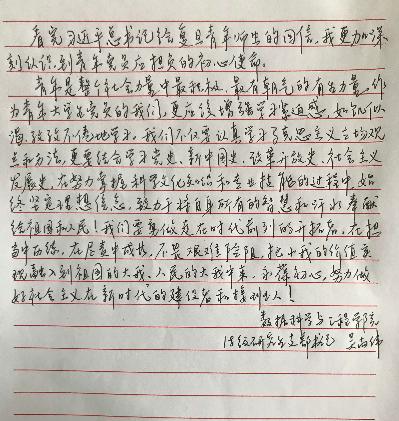 看完习近平总书记给复旦青年师生的回信，我更加深
刻认识到青年党员应担负的初心使命。
青年是整个社会力量中最积极、最有朝气的有生力量，作
为青年大学生党员的我们，更应该增强学习紧迫感，如饥似
渴、孜孜不倦地学习。我们不仅要认真学习马克思主义立场观
点和方法，更要结合学习党史、新中国史、改革开放史、社会主义
发展史，在努力掌握科学文化知识和专业技能的过程中，始
终坚定理想信念，致力于将自身所有的智慧和汗水奉献
给祖国和人民！我们要争做走在时代前列的开拓者，在担
当中历练，在尽责中成长，不畏艰难险阻，把小我的价值实
现融入到祖国的大我、人民的大我中来，永葆初心，努力做
好社会主义在新时代的建设者和接班人！
数据科学与工程学院
18级研究生支部书记 吴